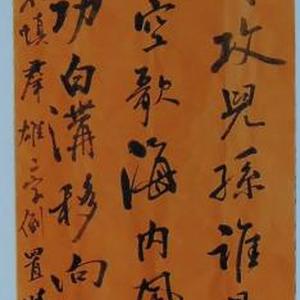 攻兒孫誰是
空歌海内風
功白溝移向
慎羣雄二字倒置